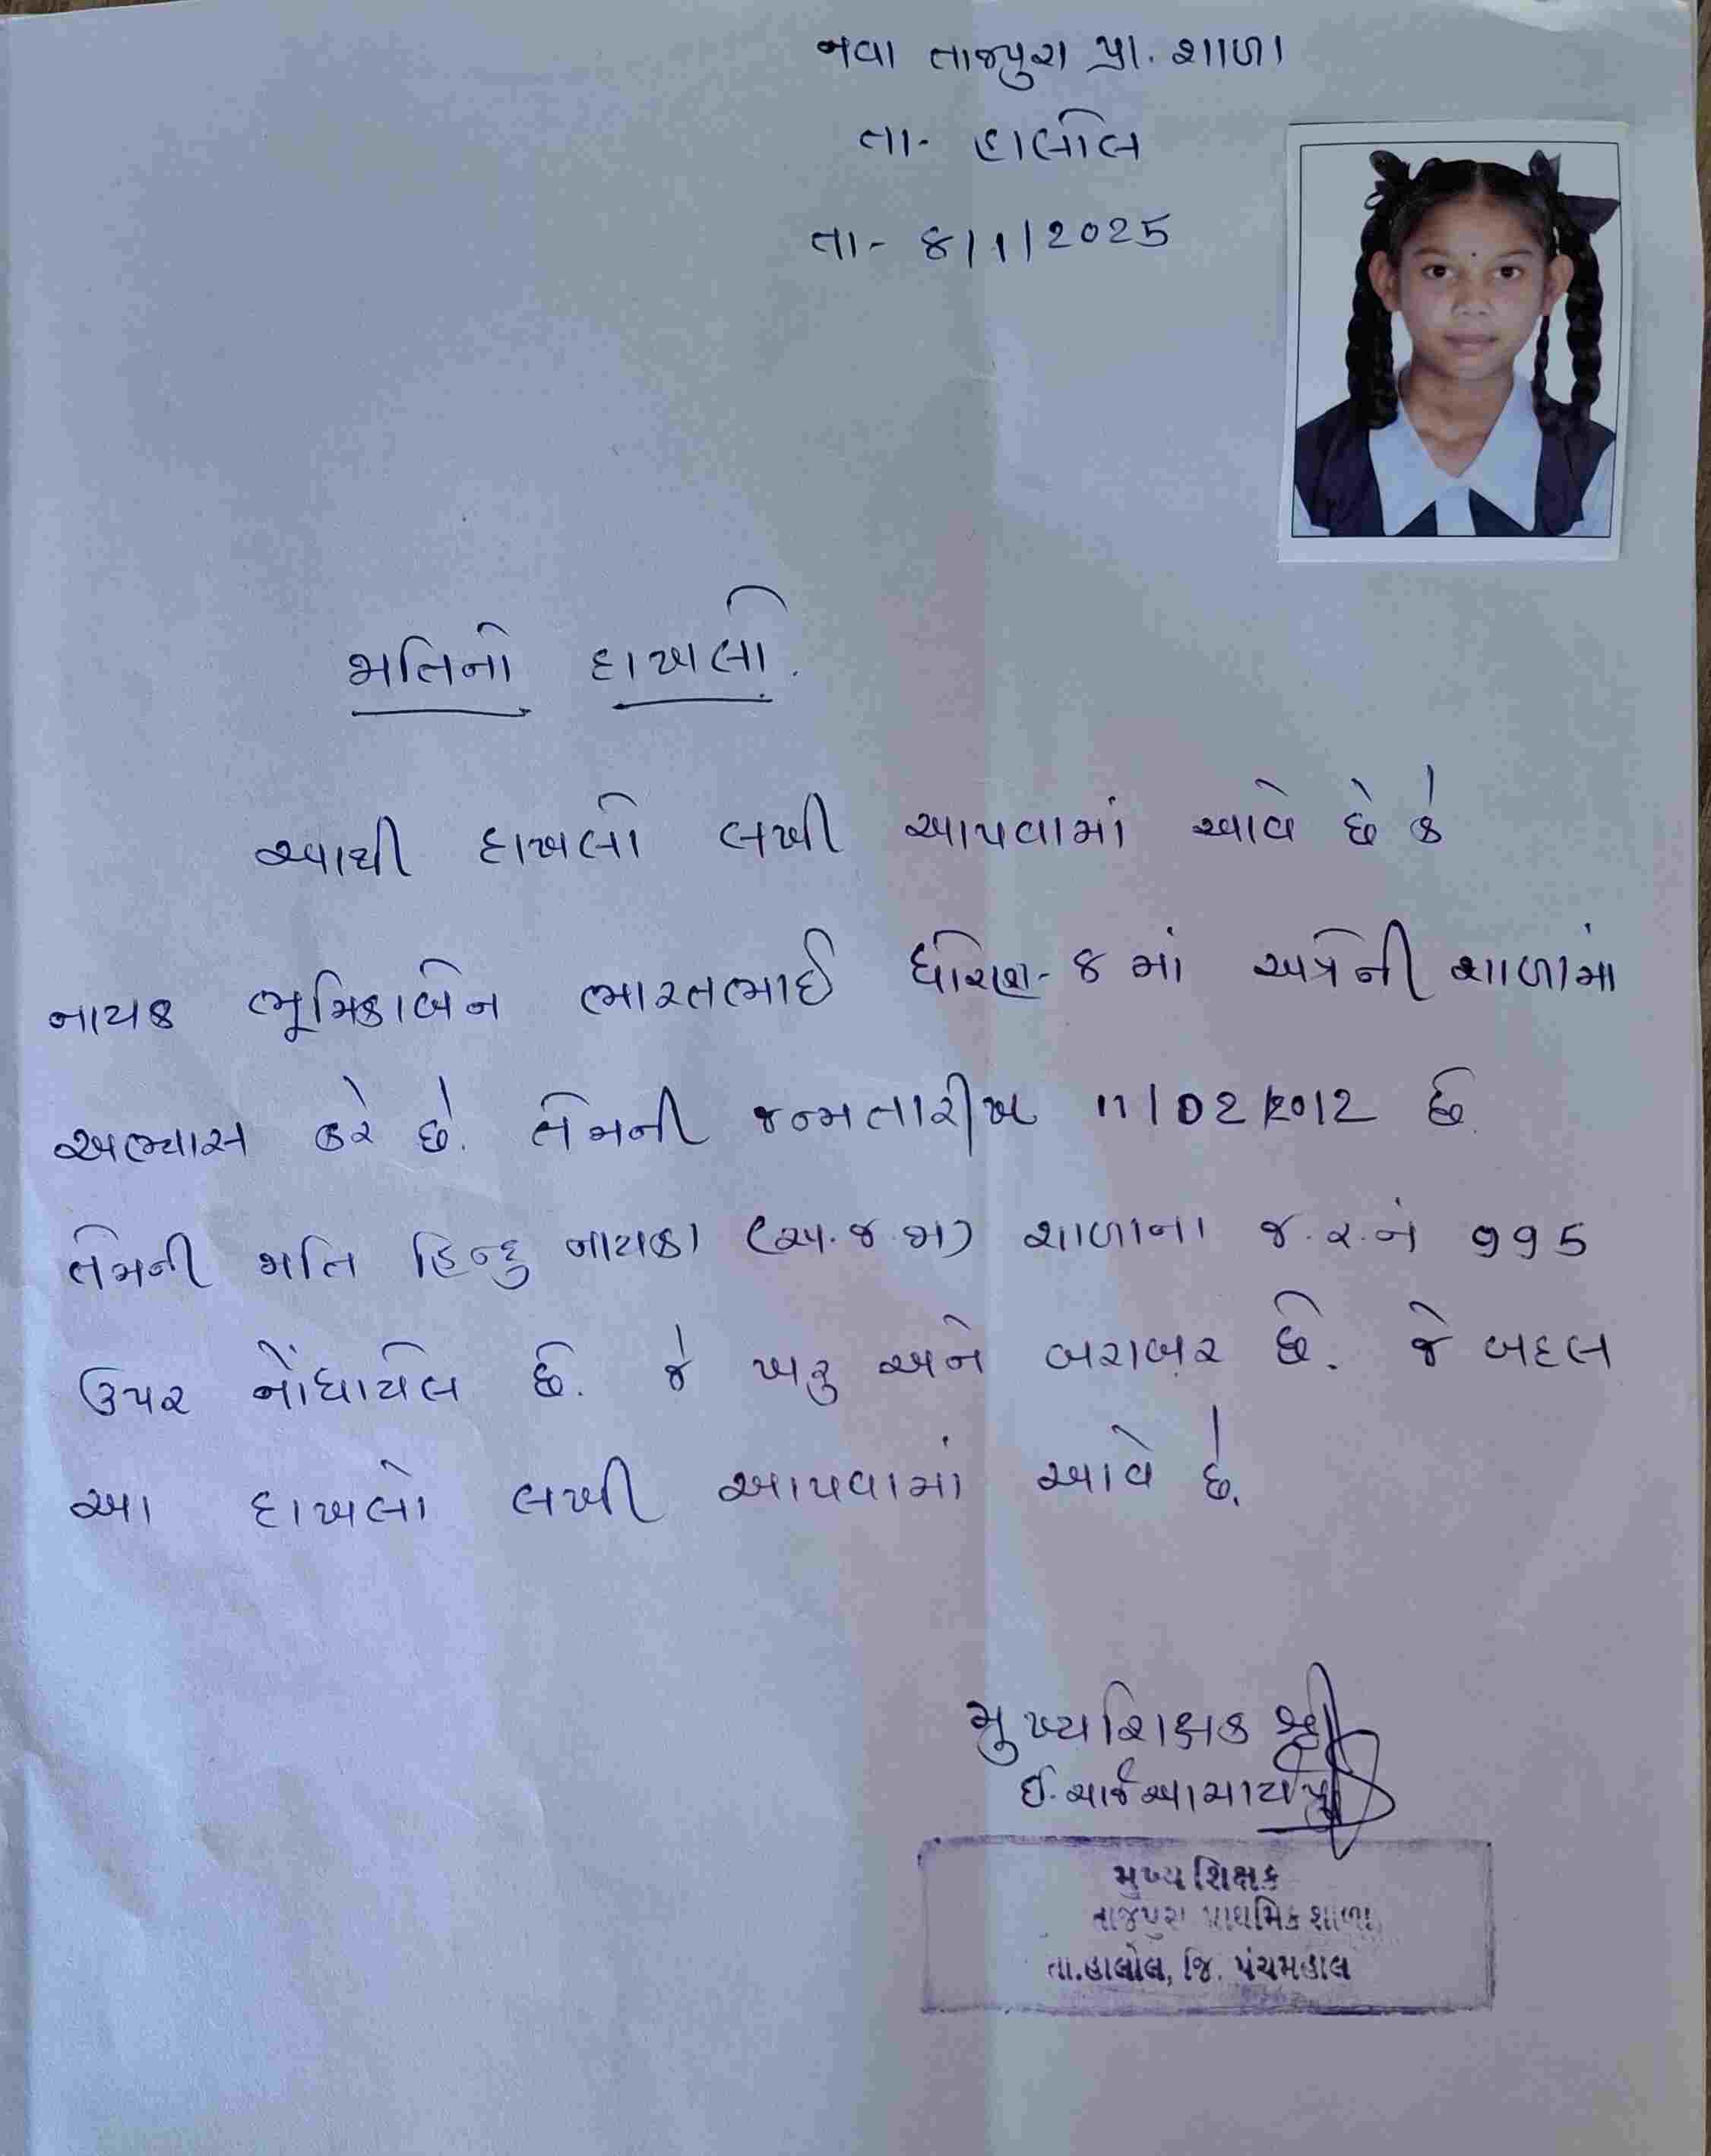 નવા તાજપુરા પ્રા. શાળા
તા- હાલોલ
તા- ૪/૧/2025
જાતિનો દાખલો.
આથી દાખલો લખી આપવામાં આવે છે કે
નાયક ભૂમિકાબેન ભારતભાઈ ધોરણ- ૪ માં અત્રેની શાળામાં
અભ્યાસ કરે છે. તેમની જન્મ તારીખ 11/02/2012 છે.
તેમની જાતિ હિન્દુ નાયકા (અ.જ.જા) શાળાના જ.ર.નં ૧૧5
ઉપર નોંધાયેલ છે. જે ખરુ અને બરાબર છે. જે બદલ
આ દાખલો લખી આપવામાં આવે છે.
મુખ્ય શિક્ષક શ્રી
ઈ.ચાર્જ આચાર્ય
મુખ્ય શિક્ષક
તાજપુરા પ્રાથમિક શાળા
તા.હાલોલ, જિ. પંચમહાલ